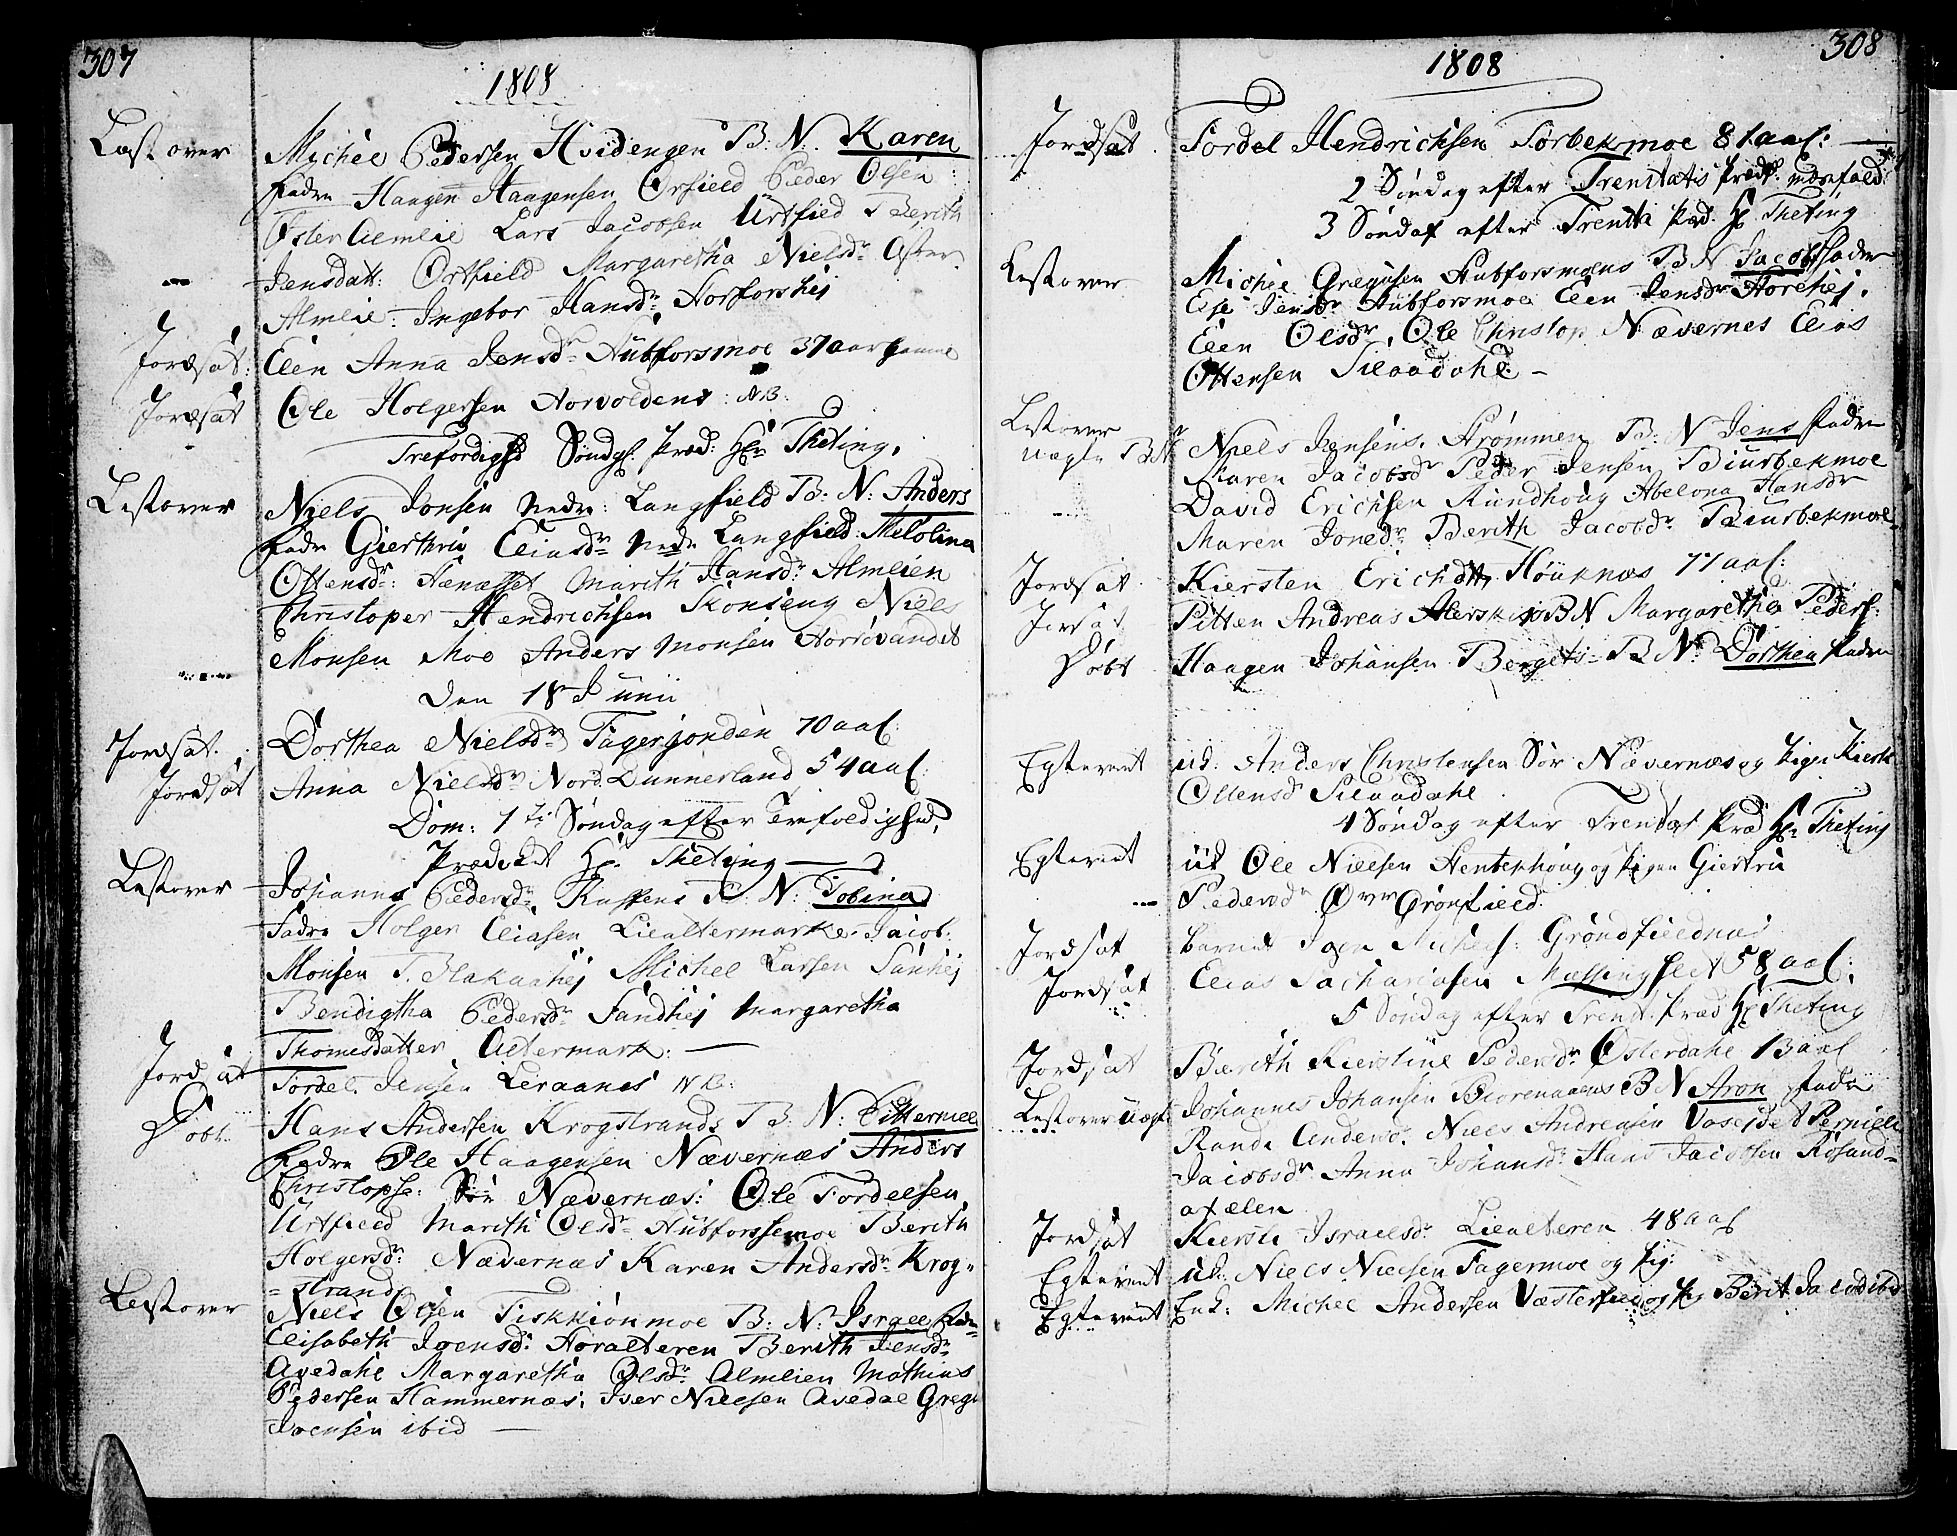 307
1808
Læst over Michel Pedersen Hvidengen B: N: Karen
fadr Haagen Haagensen Ørfield Peder Olsen
Øster Almlie Lars Jacobsen Urtfied Berith
Jensdatt: Ortfield Margaretha Nielsdr Øster
Almlie: Ingebor Hansdr Horforshej
Jordsat: Elen Anna Jensdr Hubforsmoe 37 aar gammel
Jordsat Ole Holgersen Horvoldens: NB:
Trefoldighd Søndg: Præd: Hr Theting,
Læst over Niels Jonsen Nedr: Langfield B: N: Anders
fadr Gierthru Eliasdr Nedr Langfield Melolina
Ottensdr: Hænæsset Marith Hansdr: Almlien
Christoper Hendrichsen Skonseng Niels
Monsen Moe Anders Monsen Horsvandet
Den 18 Junii
Jordsat. Dorthea Nielsdr Fagerjorden 70 aal:
Jordsat Anna Nielsdr Nord Dunnerland 54 aal:
Dom: 1te Søndag efter Trefoldighed,
Prædiket Hr. Theting
Læst over Johannes Pedersdr: Raffens B: N: Tobina
Fadre Holger Eliasen Lilaltermark Jacob
Monsen Blakaahej Michel Larsen Sanhej
Bendigtha Pedersdr Sandhej Margaretha
Thomesdatter Altermark:
Jordsat Tordel Jensen Leraanes NB:
Døbt Hans Andersen Krogstrands B: N: Pitternel
fadre Ole Haagensen Nævernæs Anders
Christopse: Sør Nævernæs: Ole Tordelsen
Urtfield Marith Olsdr Hubforssemoe Berith
Holgersdr: Nævernæs Karen Andersdr: Krog-
-strand
Læst over Niels Olsen Fiskkionmoe B: N: Israel Fadr
Elisabeth Joensd: Horalteren Berith Jensdr
Avedahl Margaretha Olsdr: Almlien Mathias
Pedersen Hammernæs, Iver Nilesen Avedal Gregr
Joensen ibid
308
1808
Jordsat Tordel Hendrichsen Tørbekmoe 81 aal:
2 Søndag efter Trenitatis Præd:
3 Søndag efter Trenita Præd. Hr Theting
Læst over Michel Gregusen Hubforsmoens B N Jacob fadre
Else Jensdr Hubforsmoe Elen Jensdr Horehej.
Elen Olsdr, Ole Christop Nævernes Elias
Ottensen Silaadahl
Læst over Niels Jensens. Strømmen B: N Jens fadre
Uægte Maren Jacobsdr Peder Jensen Biurbekmoe
David Erichsen Rundhoug Abelona Hansdr
Maren Jonsdr Berith Jacobdr Biurbekmoe
Jordsat Kiersten Erichdtt, Høuknæs 77 aal:
Jordsat Pitter Andreas BN Margaretha Peders:
Døbt Haagen Johansen Bergets B N: Dorthea fadre
Egteviet ud: Anders Christensen Sør Nævernæs og Pigen Kierst
Ottensd Silaadahl
4 Søndag efter Trenitat Præd Hr Theting
Egteviet ud Ole Nielsen Hentekhoug og Pigen Giertru
Pedersdr Øver Grønfield.
Jordsat barnet Grøndfieldnæs
Jordsat Elias Sachariasen Mæssing slet 58 aal:
5 Søndag efter Trenit. Præd Hr Theting
Jordsat Bærith Kierstine Pedersdr Østerdahl 13 aal
Læst over Uægt Johannes Johansen Biorenaanes B N Aron fadr
Randi Andersd. Niels Andreasen Vasedet Pernille
Jacobsdr Anna Johansd: Hans Jacobsen Røsand-
ofælen
Jordsat Kiersti Israelsdr Lilalteren 48 aal
Egteviet Uk: Niels Nielsen Fagermoe og Pig:
Egteviet Enk: Michel Andersen Væsterfield og Pig Berit Jacobd ibd